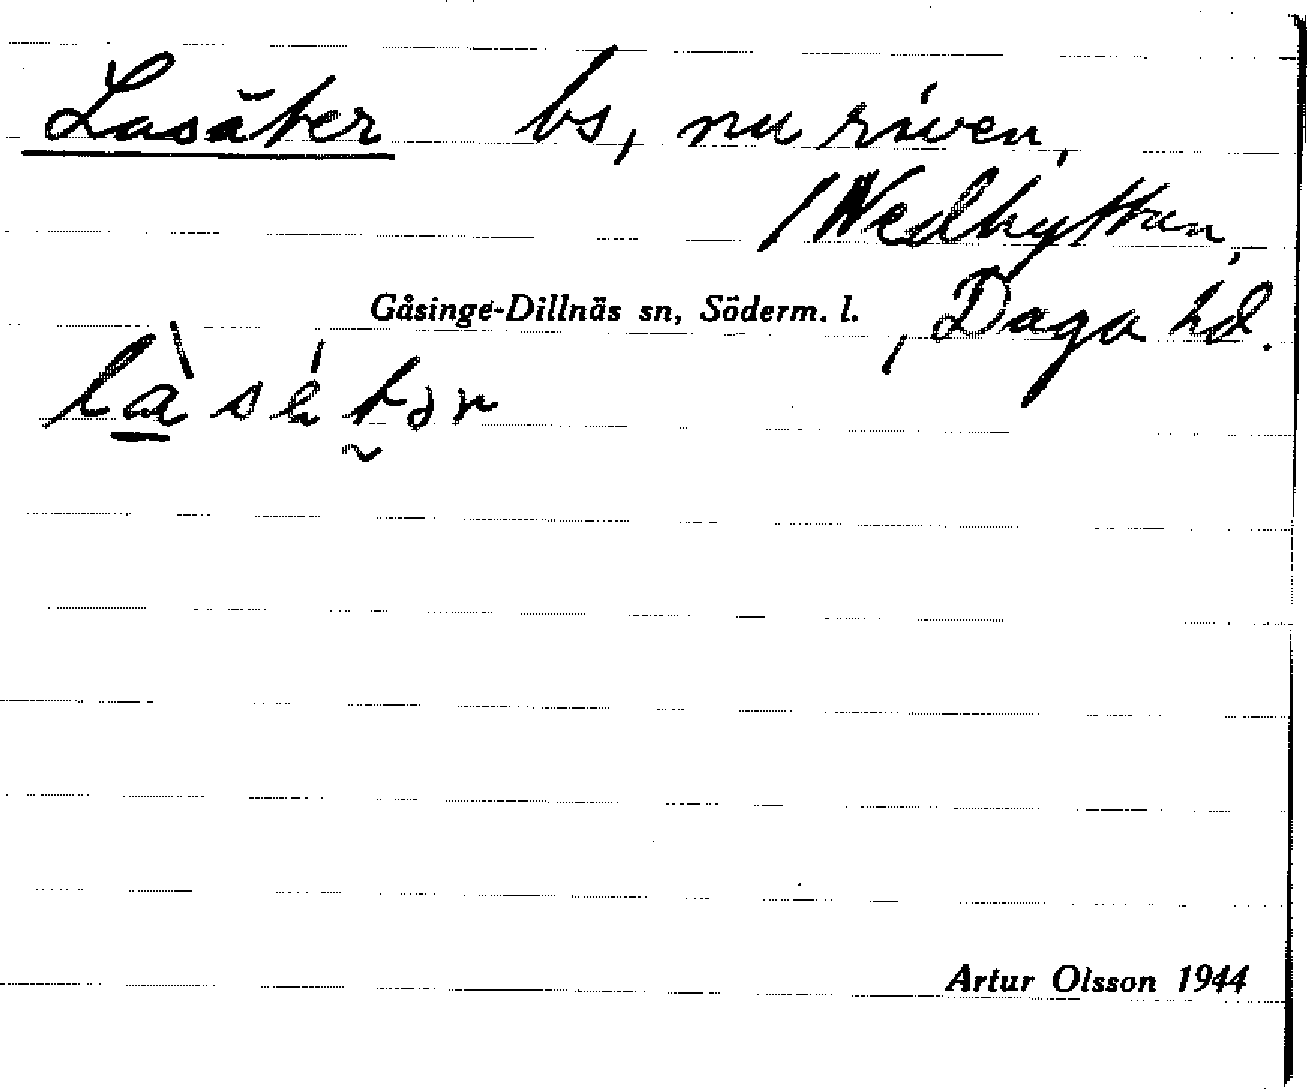 Lasäter bs, nu riven,
/Nedhyttan,
Gåsinge-Dillnäs sn, Söderm. l. , Daga hd.
Artur Olsson 1944